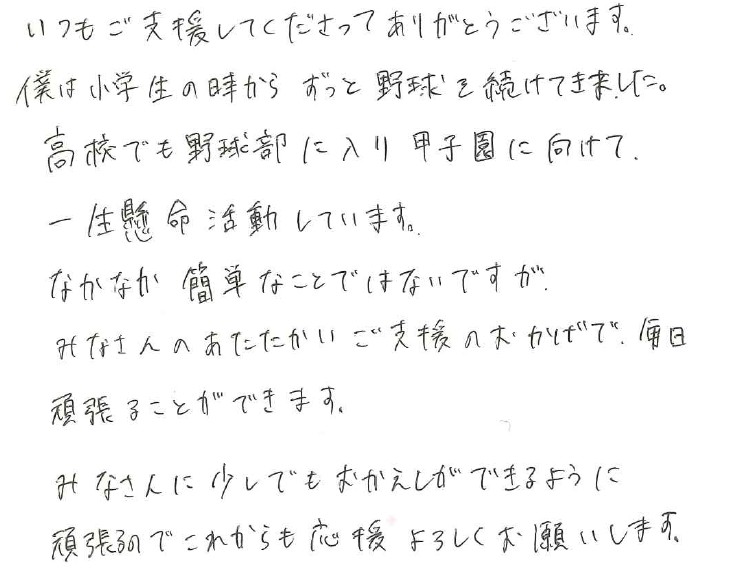 いつもご支援してくださってありがとうございます。
僕は小学生の時から ずっと 野球を続けてきました。
高校でも野球部に入り 甲子園に向けて、
一生懸命活動しています。
なかなか 簡単なことではないですが、
みなさんのあたたかいご支援のおかげで、毎日
頑張ることができます。
みなさんに少しでもおかえしができるように
頑張るのでこれからも応援 よろしくお願いします。